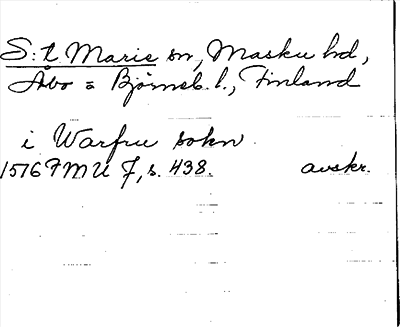 S:t Marie sn, Masku hd,
Åbo = Björneb. l., Finland
i Warfru sokn
1516 FMU 7, s. 438. avskr.